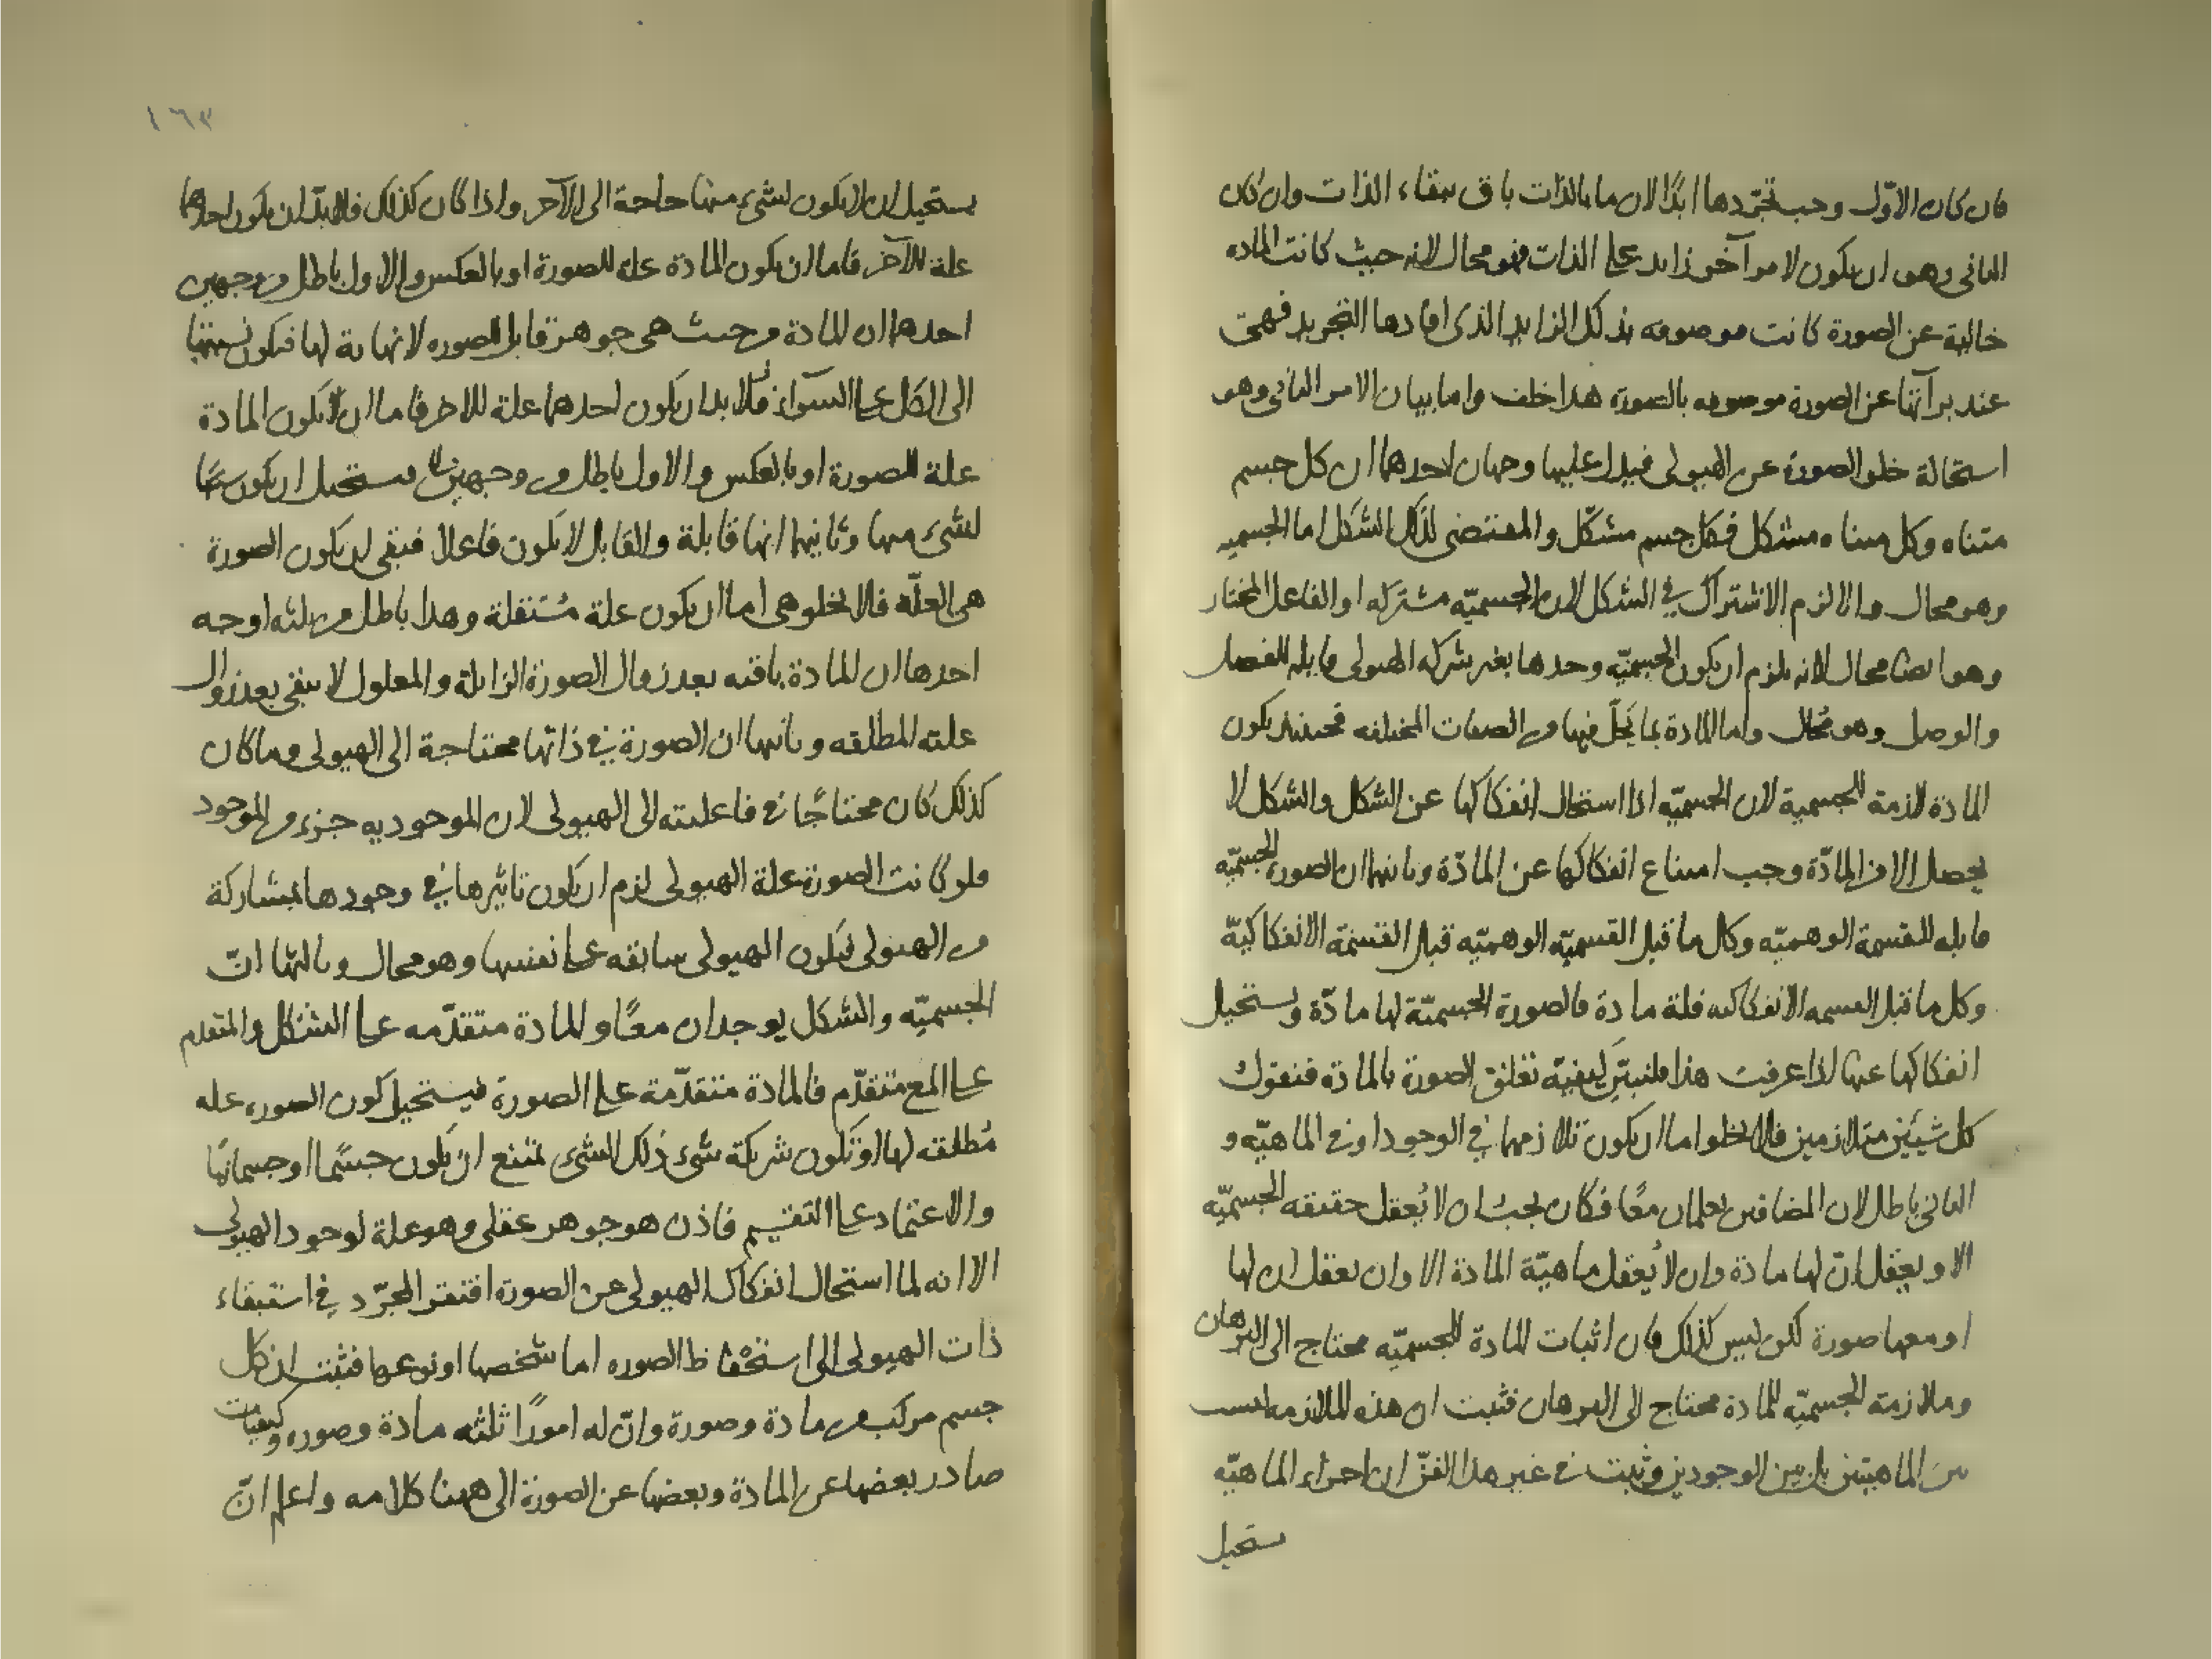 فان كان الاوّل وجب تجرّدها ابدًا لان ما بالذات باق ببقاء الذات وان كان
الثانى وهو ان يكون لامر آخر زايد على الذات فهو محال لانه حيث كانت المادة
خالية عن الصورة كانت موصوفه بذلك الزايد الذى افادها التجريد فهى
عند برآتها عن الصورة موصوفه بالصورة هذا خلف واما بيان الامر الثانى وهو
استحالة خلو الصورة عن الهيولى فيدل عليها وجهان احدهما ان كل جسم
متناه وكل متناه مشكل فكل جسم مشكّل والمقتضى لذلك الشكل اما الجسميه
وهو محال والا لزم الاشتراك فى الشكل لان الجسميّه مشتركه او الفاعل المختار
وهو ايضا محال لانه يلزم ان يكون الجسميّه وحدها بغير شركه الهيولى قابله للفصل
والوصل وهو مُحال واما المادة بما يَحلّ فيها من الصفات المختلفه فحينئذ يكون
المادة لازمة للجسمية لان الجسميّه اذا استحال انفكاكها عن الشكل والشكل لا
يحصل الا من المادّة وجب امتناع انفكاكها عن المادّة وثانيها ان الصورة الجسميّه
قابله للقسمة الوهميّه وكل ما قبل القسميّه الوهميّه قبل القسمة الانفكاكيّة
وكل ما قبل القسمه الانفكاكيه فلة مادة فالصورة الجسميّة لها مادّة ويستحيل
انفكاكها عنها اذا عرفت هذا فلنبيّن كيفيّه تعلق الصورة بالمادّة فنقول
كل شيئين متلازمين فلا يخلو اما ان يكون تلازمهما فى الوجود او فى الماهيّه و
الثانى باطل لان المضافين يعلمان معًا فكان يجب ان لا يُعقل حقيقه الجسميّه
الا ويعقل انّ لها مادة وان لا يُعقل ماهيّة المادة الا وان يعقل ان لها
او معها صورة لكن ليس كذلك فان اثبات المادة للجسميّه محتاج الى البرهان
وملازمة الجسميّه للمادة محتاج الى البرهان فثبت ان هذه الملازمه ليست
بين الماهيتين بل بين الوجودين وثبت فى غير هذا الفنّ ان اجزاء الماهيّه
يستحيل
١٦٣
يستحيل ان لا يكون لشىء منها حاجة الى الآخر واذا كان كذلك فلا بدّ ان يكون احدهما
علة للآخر فاما ان يكون المادة علة للصورة او بالعكس والاول باطل من وجهين
احدهما ان المادة من حيث هى جوهر قابل للصوره لا نهاية لها فيكون نسبتها
الى الكل على السواء فلا بد ان يكون احدهما علة للاخر فاما ان لا يكون المادة
علة للصورة او بالعكس والاول باطل من وجهين يستحيل ان يكون سببًا
لشىء منها وثانيهما انها قابلة والقابل لا يكون فاعلا فبقى ان يكون الصورة
هى العلّه فلا يخلو هى اما ان يكون علة مُستقلة وهذا باطل من ثلثه اوجه
احدها ان المادة باقيه بعد زوال الصورة الزايلة والمعلول لا يبقى بعد زوال
علته المطلقه وثانيها ان الصورة فى ذاتها محتاجة الى الهيولى وما كان
كذلك كان محتاجًا فى فاعليته الى الهيولى لان الموجوديه جزء من الموجود
فلو كانت الصورة علة الهيولى لزم ان يكون تاثيرها فى وجودها بمشاركة
من الهيولى فيكون الهيولى سابقه على نفسها وهو محال وثالثها انّ
الجسميّه والشكل يوجدان معًا والمادة متقدّمه على الشكل والمتقدم
على المع متقدّم فالمادة متقدّمة على الصورة فيستحيل كون الصورة علة
مُطلقه لها او تكون شريكة شىء ذلك الشىء يمتنع ان يكون جسمًا او جسمانيًا
والاعتماد على التقسيم فاذن هو جوهر عقلى وهو علة لوجود الهيولى
الا انه لما استحال انفكاك الهيولى عن الصورة افتقر المجرّد فى استبقاء
ذات الهيولى الى استحفاظ الصوره اما شخصها او نوعها فثبت ان كل
جسم مركب من مادة وصورة وانّ له امورًا ثلثه مادة وصوره وكيفيات
صادر بعضها عن المادة وبعضها عن الصورة الى ههنا كلامه واعلم انّ